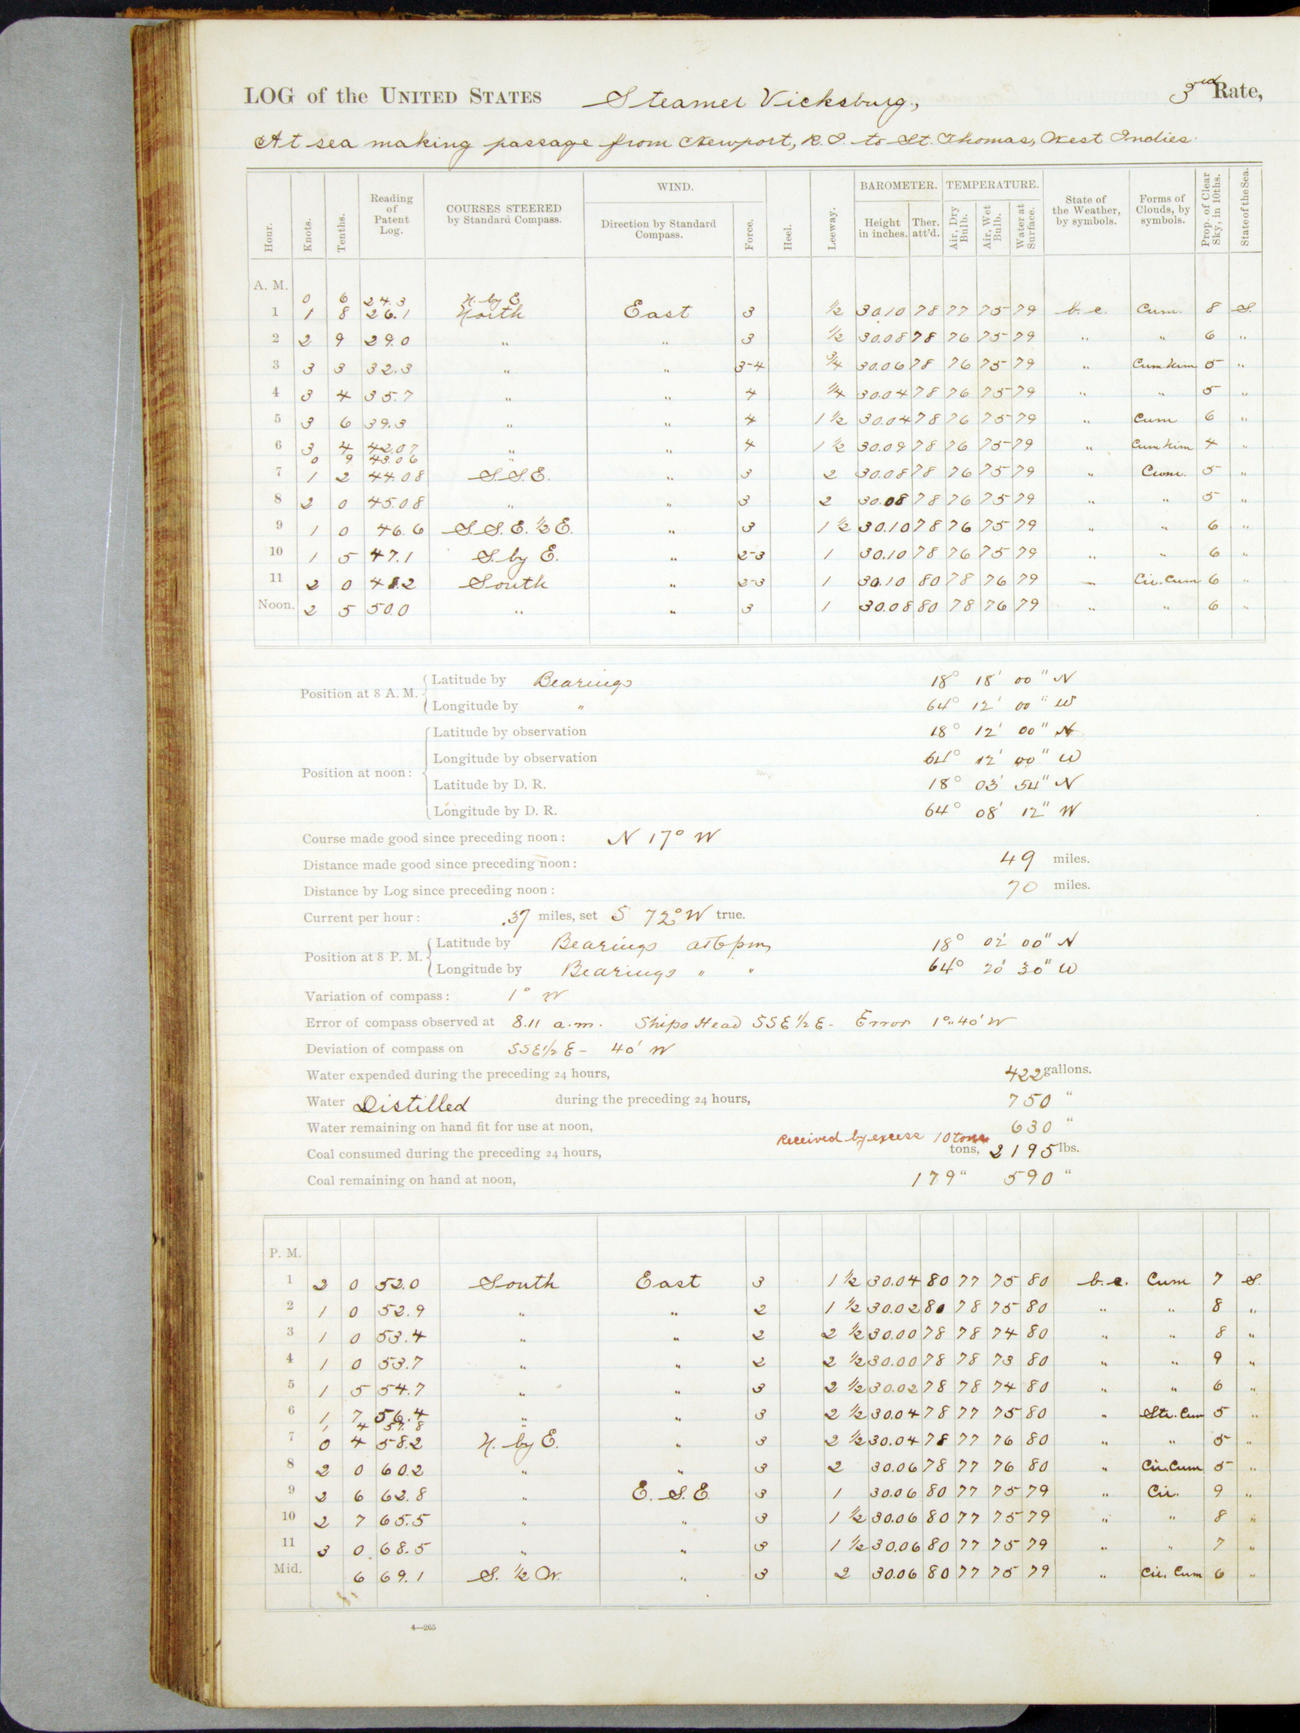 LOG of the UNITED STATES Steamer Vicksburg, 3rd Rate,
At sea making passage from Newport, R.I. to St. Thomas, West Indies.
Hour. Knots. Tenths. Reading of Patent Log. COURSES STEERED by Standard Compass. WIND. Direction by Standard Compass. Force. Heel. Leeway. BAROMETER. Height in inches. Ther. att'd. TEMPERATURE. Air, Dry Bulb. Air, Wet Bulb. Water at Surface. State of the Weather, by symbols. Forms of Clouds, by symbols. Prop. of Clear Sky, in 10ths. State of the Sea.
A. M.
0 6 24.3 N. by E.
1 1 8 26.1 North East 3 ½ 30.10 78 77 75 79 b.c. Cum. 8 S.
2 2 9 29.0 " " 3 ½ 30.08 78 76 75 79 " " 6 "
3 3 3 32.3 " " 3-4 ¾ 30.06 78 76 75 79 " Cum Nim 5 "
4 3 4 35.7 " " 4 30.04 78 76 75 79 " " 5 "
5 3 6 39.3 " " 4 1 ½ 30.04 78 76 75 79 Cum 6 "
6 3 4 42.07 " " 4 1 ½ 30.09 78 76 75 79 " Cum Nim 4 "
0 9 43.06 "
7 1 2 44.08 S.S.E. " 3 2 30.08 78 76 75 79 " Cum. 5 "
8 2 0 45.08 " " 3 2 30.08 78 76 75 79 " " 5 "
9 1 0 46.6 S.S.E. ½ E. " 3 1 ½ 30.10 78 76 75 79 " " 6 "
10 1 5 47.1 S. by E. " 2-3 1 30.10 78 76 75 79 " " 6 "
11 2 0 South " 2-3 1 30.10 80 78 76 79 " Cir. Cum 6 "
Noon. 2 5 50.0 " " 3 1 30.08 80 78 76 79 " " 6 "
Position at 8 A. M. Latitude by Bearings 18° 18' 00" N
Longitude by " 64° 12' 00" W
Position at noon: Latitude by observation 18° 12' 00" N
Longitude by observation 64° 12' 00" W
Latitude by D. R. 18° 03' 54" N
Longitude by D. R. 64° 08' 12" W
Course made good since preceding noon: N 17° W
Distance made good since preceding noon: 49 miles.
Distance by Log since preceding noon: 70 miles.
Current per hour: .37 miles, set S 72° W true.
Position at 8 P. M. Latitude by Bearings at 6 pm 18° 02' 00" N
Longitude by Bearings " " 64° 20' 30" W
Variation of compass: 1° W
Error of compass observed at 8.11 a.m. Ships Head SSE ½ E - Error 1° 40' W
Deviation of compass on SSE ½ E - 40' W
Water expended during the preceding 24 hours, 422 gallons.
Water Distilled during the preceding 24 hours, 750 "
Water remaining on hand fit for use at noon, 630 "
Received by excess 10 tons
Coal consumed during the preceding 24 hours, tons, 2195 lbs.
Coal remaining on hand at noon, 179 " 590 "
P. M.
1 2 0 52.0 South East 3 1 ½ 30.04 80 77 75 80 b.c. Cum 7 S.
2 1 0 52.9 " " 2 1 ½ 30.02 80 78 75 80 " " 8 "
3 1 0 53.4 " " 2 2 ½ 30.00 78 78 74 80 " " 8 "
4 1 0 53.7 " " 2 2 ½ 30.00 78 78 73 80 " " 9 "
5 1 5 54.7 " " 3 2 ½ 30.02 78 78 74 80 " " 6 "
6 1 7 56.4 " " 3 2 ½ 30.04 78 77 75 80 " Str. Cum 5 "
1 4 57.8 "
7 0 4 58.2 N. by E. " 3 2 ½ 30.04 78 77 76 80 " " 5 "
8 2 0 60.2 " " 3 2 30.06 78 77 76 80 " Cir. Cum 5 "
9 2 6 62.8 " E. S. E. 3 1 30.06 80 77 75 79 " Cir. 9 "
10 2 7 65.5 " " 3 1 ½ 30.06 80 77 75 79 " " 8 "
11 3 0 68.5 " " 3 1 ½ 30.06 80 77 75 79 " " 7 "
Mid. 6 69.1 S. ½ W. " 3 2 30.06 80 77 75 79 " Cir. Cum 6 "
4—265